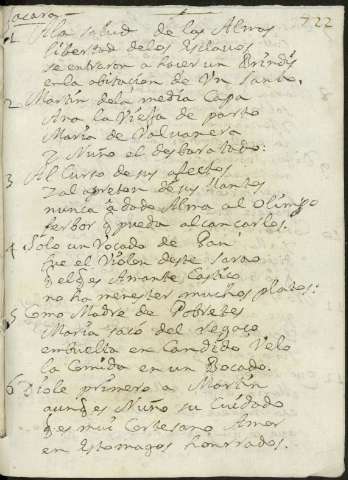 Jacara
722
1 A la salud de los Almos
libertad de los Esclavos
se entraron a hacer un Brindis
en la abitacion de Un Santo.
2 Martin de la media Capa
Ana la Vieja de parto
Maria de Valuanera
y Nuño el desbaratado:
3 Al Curso de sus afectos
y al apreton de sus llantos
nunca q̃dado Alma al Olimpo
q̃ pueda alcancarlos.
4 Solo un Vocado de Pan
fue el Violon deste sarao
q̃ el q̃ es Amante Castico
no ha menester muchos platos:
5 Como Madre de Pobretes
Maria sacó del regaço
embuelta en Candido Velo
la Comida en un Bocado.
6 Diole primero a Martin
aunq̃ es Nuño su Cuidado
q̃ es mui Cortesano Amor
en Estomagos honrrados.